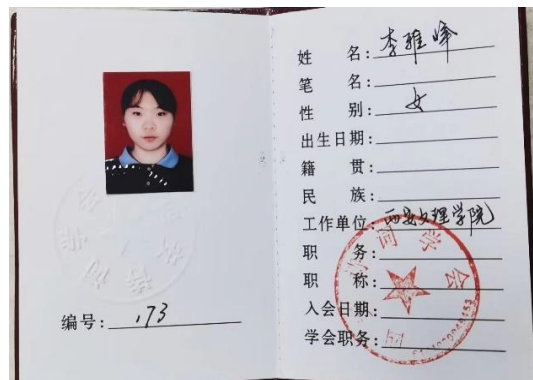 编号：173
姓 名：李雅峰
笔 名：
性 别：女
出生日期：
籍 贯：
民 族：
工作单位：西安文理学院
职 务：
职 称：
入会日期：
学会职务：